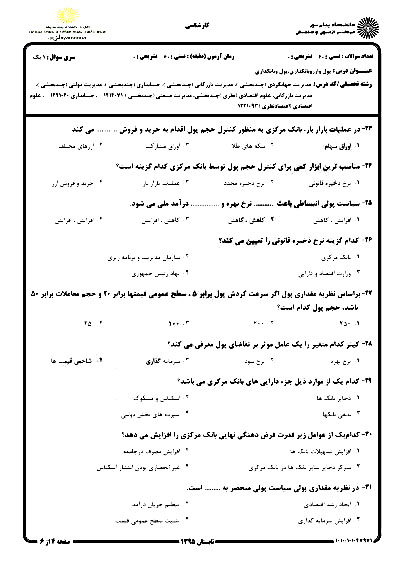 کارشناسی
دانشگاه پیام نور
مرکز آزمون و سنجش
سری سوال: ۱ یک
زمان آزمون (دقیقه): تستی: ۶۰ تشریحی: ۰
تعداد سوالات: تستی: ۴۰ تشریحی: ۰
عنوان درس: پول وارز وبانکداری، پول وبانکداری
رشته تحصیلی/کد درس:
۲۳- در عملیات بازار باز، بانک مرکزی به منظور کنترل حجم پول اقدام به خرید و فروش .......... می کند
۱. اوراق سهام ۲. سکه های طلا ۳. اوراق مشارکت ۴. ارزهای مختلف
۲۴- مناسب ترین ابزار کمی برای کنترل حجم پول توسط بانک مرکزی کدام گزینه است؟
۱. نرخ ذخیره قانونی ۲. نرخ تنزیل مجدد ۳. عملیات بازار باز ۴. خرید و فروش ارز
۲۵- سیاست پولی انبساطی باعث .......... نرخ بهره و .............. درآمد ملی می شود.
۱. افزایش ، کاهش ۲. کاهش ، کاهش ۳. کاهش ، افزایش ۴. افزایش ، افزایش
۲۶- کدام گزینه نرخ ذخیره قانونی را تعیین می کند؟
۱. بانک مرکزی ۲. سازمان مدیریت و برنامه ریزی
۳. وزارت اقتصاد و دارایی ۴. نهاد ریاست جمهوری
۲۷- براساس نظریه مقداری پول اگر سرعت گردش پول برابر ۵ ، سطح عمومی قیمتها برابر ۲۰ و حجم معاملات برابر ۵۰
باشد، حجم پول کدام است؟
۱. ۲۵۰ ۲. ۲۰۰ ۳. ۱۰۰ ۴. ۴۵
۲۸- کینز کدام متغیر را یک عامل موثر بر تقاضای پول معرفی می کند؟
۱. نرخ بهره ۲. نرخ سود ۳. سرمایه گذاری ۴. شاخص قیمت ها
۲۹- کدام یک از موارد ذیل جزء دارایی های بانک مرکزی می باشد؟
۱. ذخایر بانک ها ۲. اسکناس و مسکوک
۳. بدهی بانکها ۴. سپرده های بخش دولتی
۳۰- کدام‌یک از عوامل زیر قدرت قرض دهندگی نهایی بانک مرکزی را افزایش می دهد؟
۱. افزایش تسهیلات بانک ها ۲. افزایش مصرف در جامعه
۳. تمرکز ذخایر سایر بانک ها در بانک مرکزی ۴. غیر انحصاری بودن انتشار اسکناس
۳۱- در نظریه مقداری پولی سیاست پولی منحصر به ........ است.
۱. ایجاد رشد اقتصادی ۲. تنظیم جریان درآمد
۳. افزایش سرمایه گذاری ۴. تثبیت سطح عمومی قیمت
تابستان ۱۳۹۵